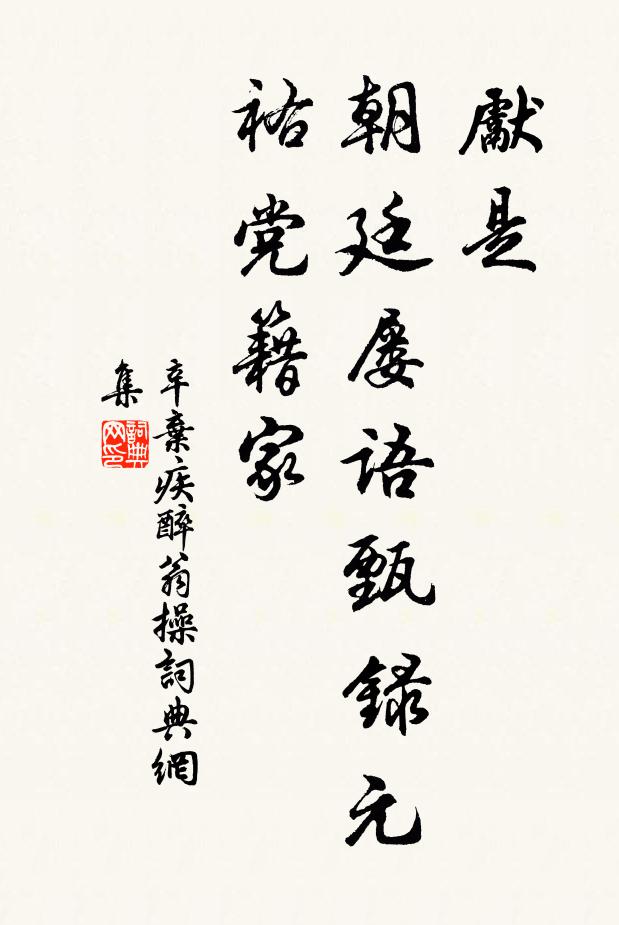 獻是
朝廷屡語甄録元
祐党籍家
辛棄疾醉翁操詞典網
集
詞典网印